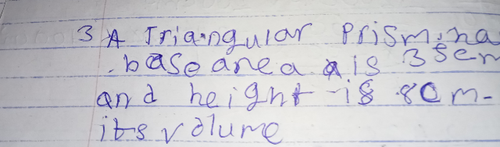 3 A Triangular Prism ha
base area is 35cm
and height is 80m.
its volume